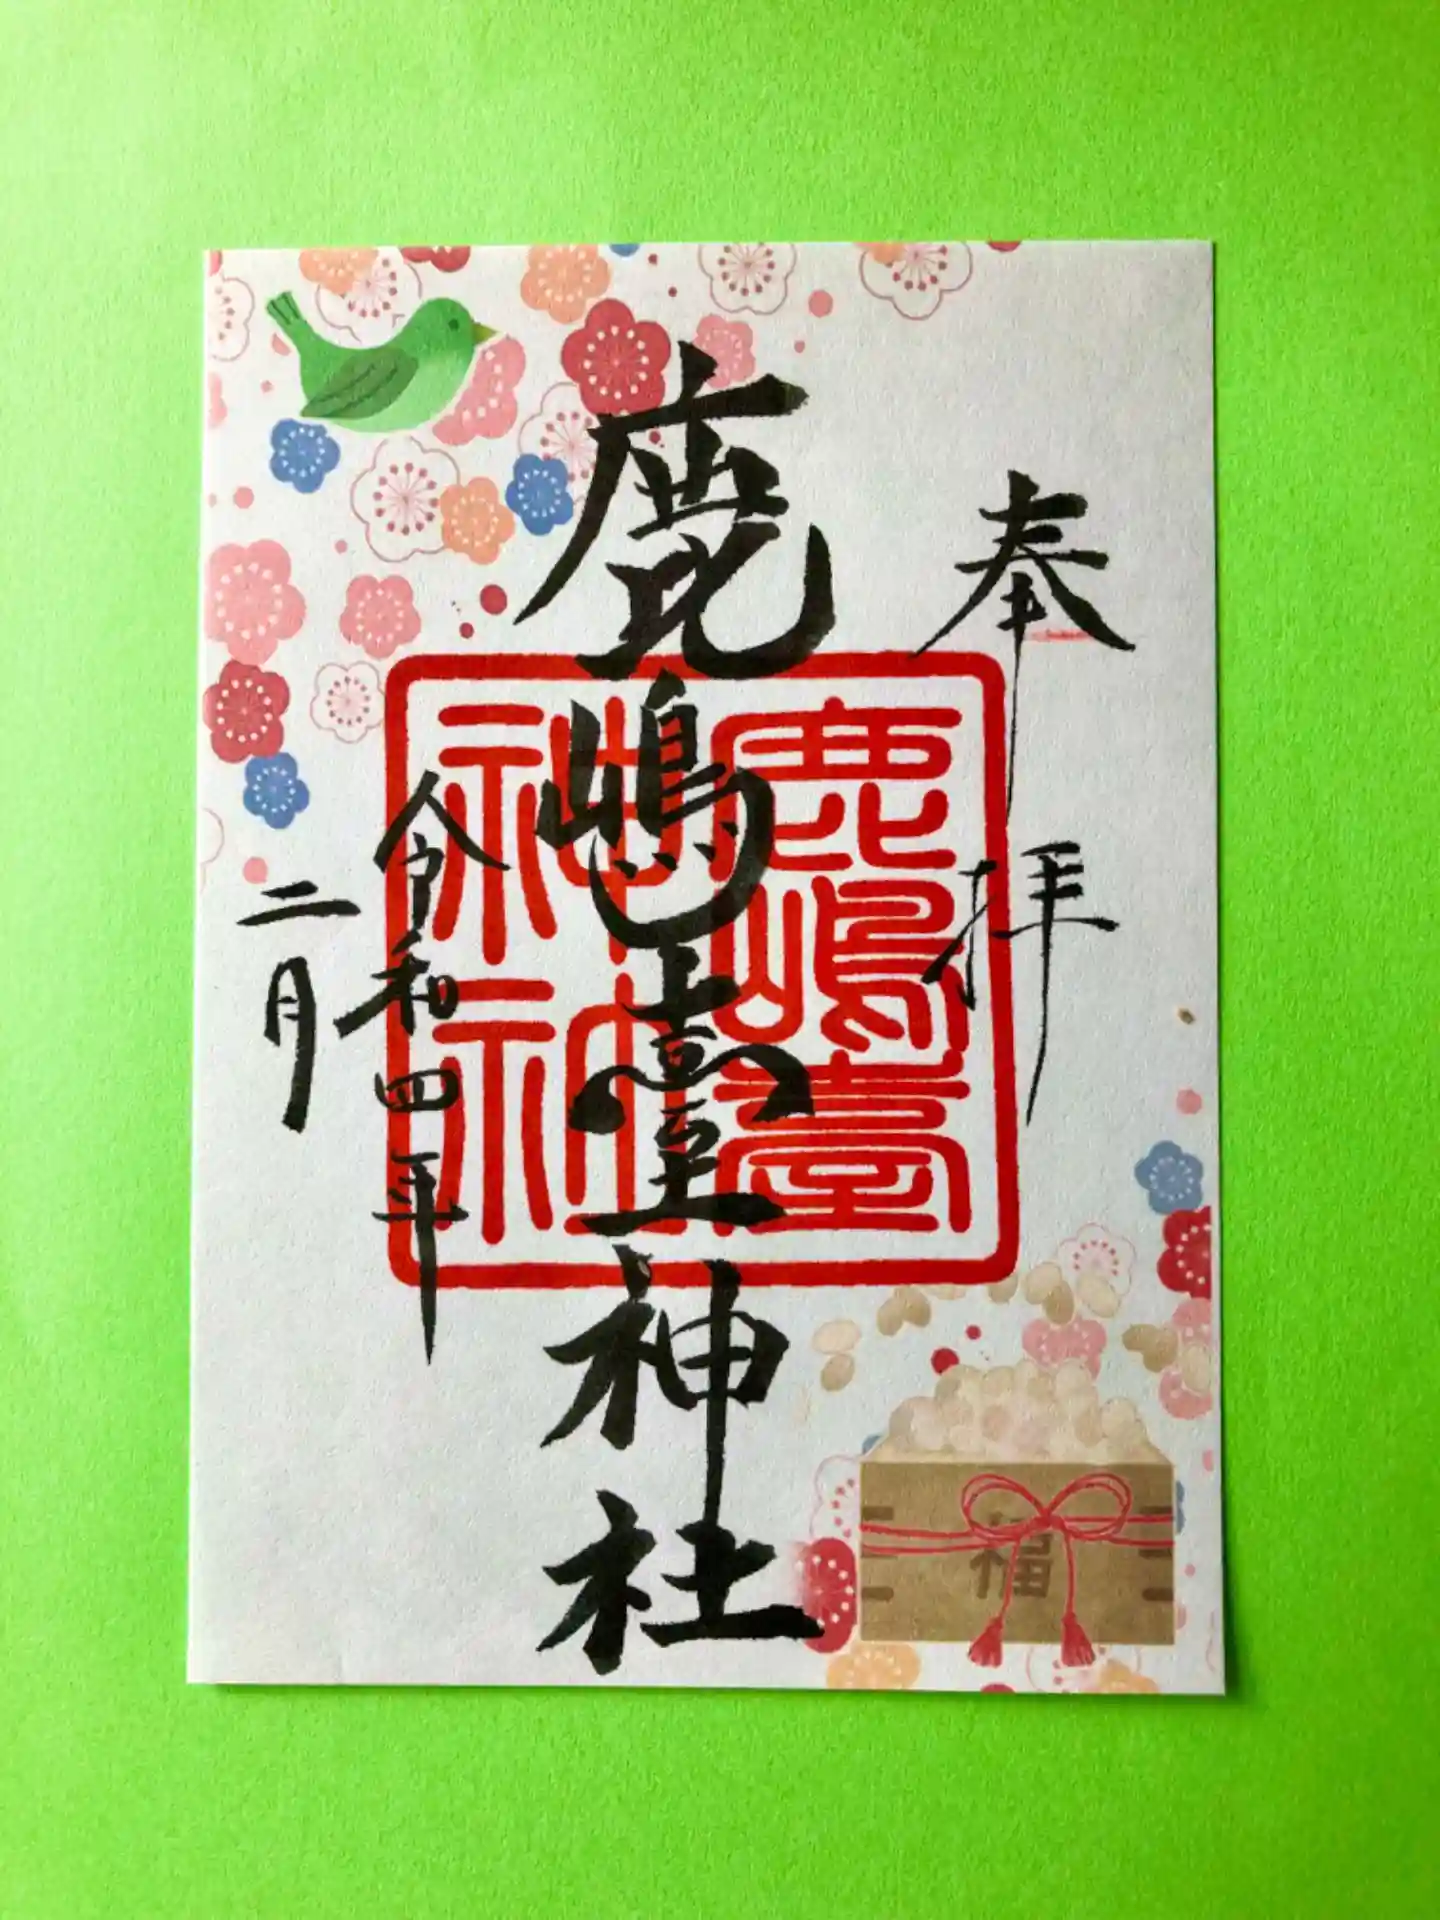 奉拝
鹿嶋臺神社
鹿嶋臺
神社
令和四年
二月
福